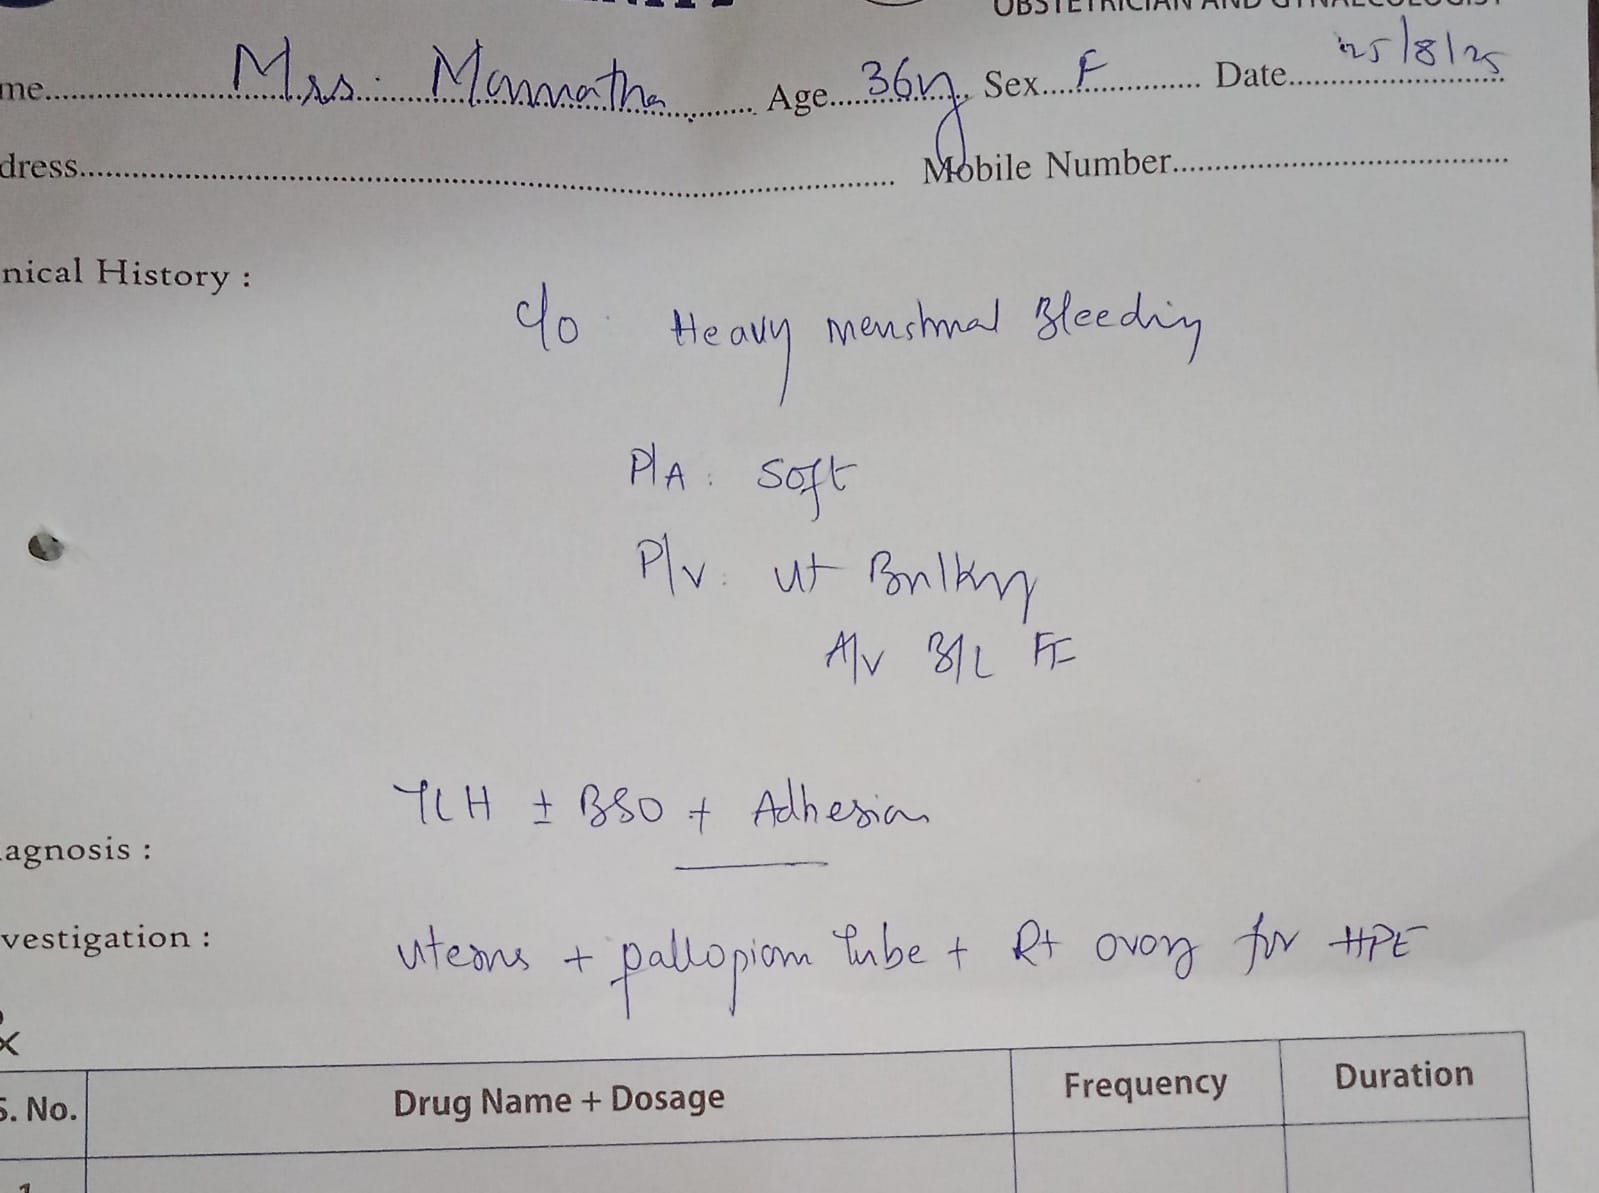 OBSTETRICIAN AND GYNAECOLOGIST
me.......... Mrs. Mannatha .......... Age..... 36y Sex.... F .......... Date..... 25/8/25
dress.......... Mobile Number..........
nical History :
c/o Heavy menstrual Bleeding
P/A : soft
P/v : ut Bulky
A/v B/L FF
TLH ± BSO + Adhesion
agnosis :
vestigation : uterus + pallopian tube + Rt ovary for HPE
S. No. Drug Name + Dosage Frequency Duration
1